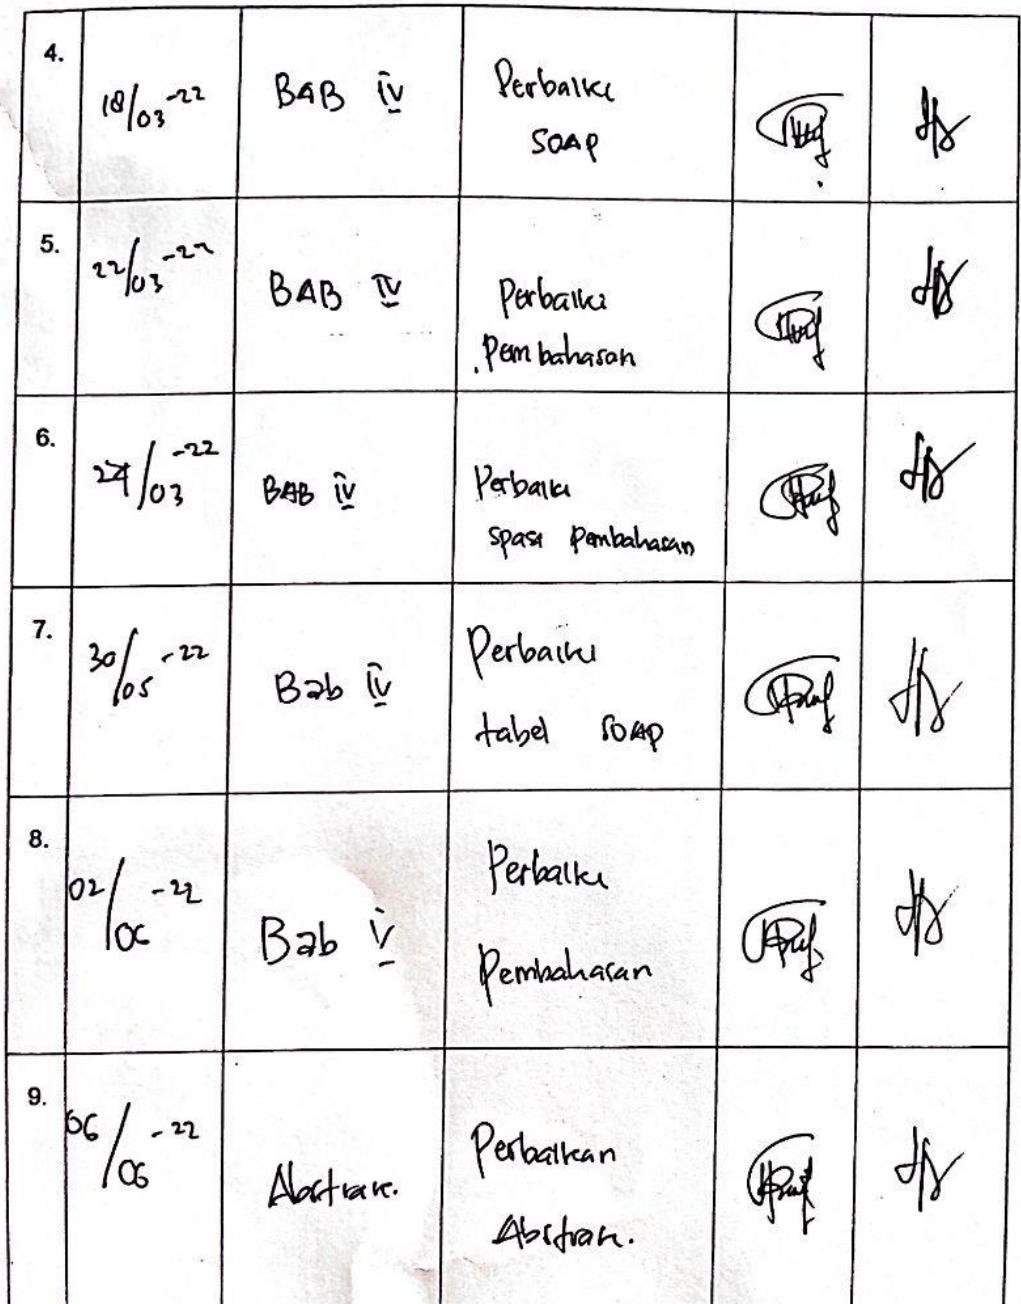 4.
18/03-22
BAB IV
Perbaiki
SOAP
5.
22/03-22
BAB IV
Perbaiki
Pembahasan
6.
24/03-22
BAB IV
Perbaiki
spasi pembahasan
7.
30/05-22
Bab IV
Perbaiki
tabel SOAP
8.
02/06-22
Bab V
Perbaiki
Pembahasan
9.
06/06-22
Abstrak.
Perbaikan
Abstrak.